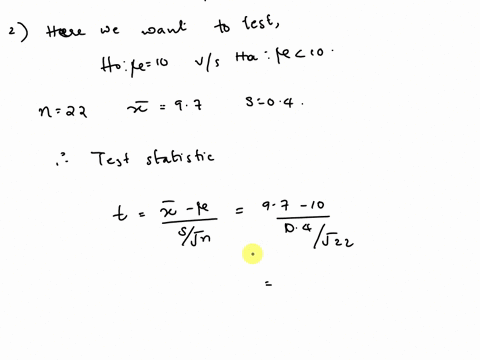 2) Here we want to test,
H0: μ=10 v/s Ha: μ<10.
n=22 x̄ = 9.7 S=0.4.
∴ Test statistic
t = x̄ - μ / S/√n = 9.7 - 10 / 0.4/√22
=